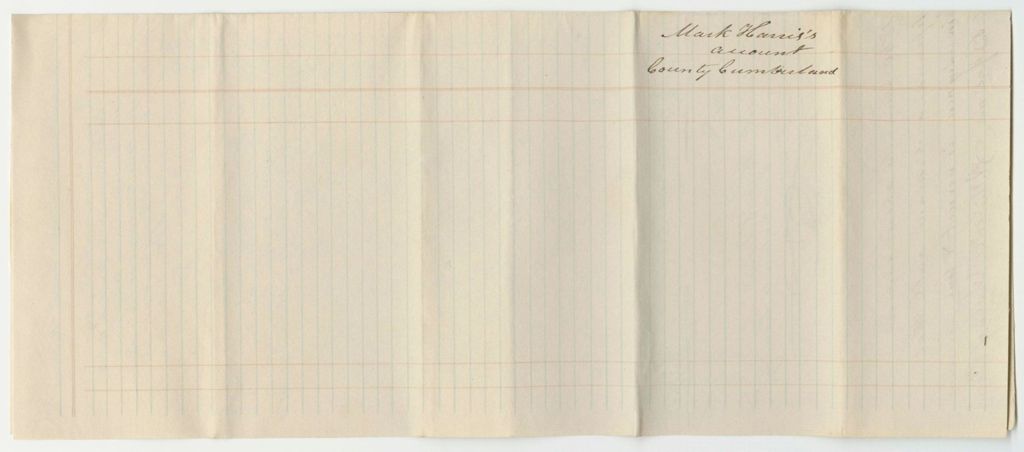 Mark Harris's
account
County Cumberland